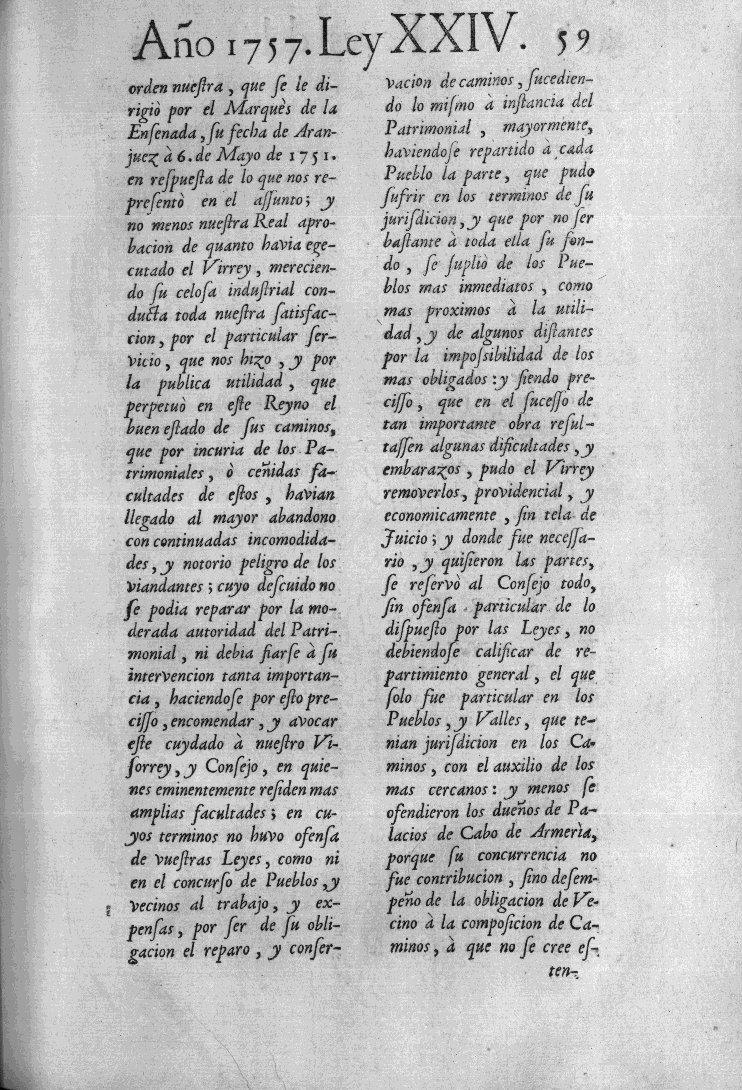 Año 1757. Ley XXIV. 59
orden nueſtra, que ſe le di-
rigiò por el Marquès de la
Enſenada, ſu fecha de Aran-
juez à 6. de Mayo de 1751.
en reſpueſta de lo que nos re-
preſentò en el aſſunto; y
no menos nueſtra Real apro-
bacion de quanto havia ege-
cutado el Virrey, merecien-
do ſu celoſa induſtrial con-
ducta toda nueſtra ſatisfac-
cion, por el particular ſer-
vicio, que nos hizo, y por
la publica utilidad, que
perpetuò en eſte Reyno el
buen eſtado de ſus caminos,
que por incuria de los Pa-
trimoniales, ò ceñidas fa-
cultades de eſtos, havian
llegado al mayor abandono
con continuadas incomodida-
des, y notorio peligro de los
viandantes; cuyo deſcuido no
ſe podia reparar por la mo-
derada autoridad del Patri-
monial, ni debia fiarſe à ſu
intervencion tanta importan-
cia, haciendoſe por eſto pre-
ciſſo, encomendar, y avocar
eſte cuydado à nueſtro Vi-
ſorrey, y Conſejo, en quie-
nes eminentemente reſiden mas
amplias facultades; en cu-
yos terminos no huvo ofenſa
de vueſtras Leyes, como ni
en el concurſo de Pueblos, y
vecinos al trabajo, y ex-
penſas, por ſer de ſu obli-
gacion el reparo, y conſer-
vacion de caminos, ſucedien-
do lo miſmo à inſtancia del
Patrimonial, mayormente,
haviendoſe repartido à cada
Pueblo la parte, que pudo
ſufrir en los terminos de ſu
juriſdicion, y que por no ſer
baſtante à toda ella ſu fon-
do, ſe ſupliò de los Pue-
blos mas inmediatos, como
mas proximos à la utili-
dad, y de algunos diſtantes
por la impoſsibilidad de los
mas obligados: y ſiendo pre-
ciſſo, que en el ſuceſſo de
tan importante obra reſul-
taſſen algunas dificultades, y
embarazos, pudo el Virrey
removerlos, providencial, y
economicamente, ſin tela de
Juicio; y donde fue neceſſa-
rio, y quiſieron las partes,
ſe reſervò al Conſejo todo,
ſin ofenſa particular de lo
diſpueſto por las Leyes, no
debiendoſe calificar de re-
partimiento general, el que
ſolo fue particular en los
Pueblos, y Valles, que te-
nian juriſdicion en los Ca-
minos, con el auxilio de los
mas cercanos: y menos ſe
ofendieron los dueños de Pa-
lacios de Cabo de Armerìa,
porque ſu concurrencia no
fue contribucion, ſino deſem-
peño de la obligacion de Ve-
cino à la compoſicion de Ca-
minos, à que no ſe cree eſ-
ten-